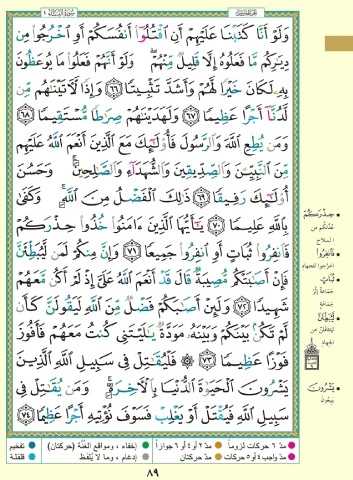 سورة النساء ٤
الجزء الخامس
وَلَوْ أَنَّا كَتَبْنَا عَلَيْهِمْ أَنِ ٱقْتُلُوٓا۟ أَنفُسَكُمْ أَوِ ٱخْرُجُوا۟ مِن
دِيَٰرِكُم مَّا فَعَلُوهُ إِلَّا قَلِيلٌ مِّنْهُمْ ۖ وَلَوْ أَنَّهُمْ فَعَلُوا۟ مَا يُوعَظُونَ
بِهِۦ لَكَانَ خَيْرًا لَّهُمْ وَأَشَدَّ تَثْبِيتًا ٦٦ وَإِذًا لَّءَاتَيْنَٰهُم مِّن
لَّدُنَّآ أَجْرًا عَظِيمًا ٦٧ وَلَهَدَيْنَٰهُمْ صِرَٰطًا مُّسْتَقِيمًا ٦٨
وَمَن يُطِعِ ٱللَّهَ وَٱلرَّسُولَ فَأُو۟لَٰٓئِكَ مَعَ ٱلَّذِينَ أَنْعَمَ ٱللَّهُ عَلَيْهِم
مِّنَ ٱلنَّبِيِّـۧنَ وَٱلصِّدِّيقِينَ وَٱلشُّهَدَآءِ وَٱلصَّٰلِحِينَ ۚ وَحَسُنَ
أُو۟لَٰٓئِكَ رَفِيقًا ٦٩ ذَٰلِكَ ٱلْفَضْلُ مِنَ ٱللَّهِ ۚ وَكَفَىٰ
بِٱللَّهِ عَلِيمًا ٧٠ يَٰٓأَيُّهَا ٱلَّذِينَ ءَامَنُوا۟ خُذُوا۟ حِذْرَكُمْ
فَٱنفِرُوا۟ ثُبَاتٍ أَوِ ٱنفِرُوا۟ جَمِيعًا ٧١ وَإِنَّ مِنكُمْ لَمَن لَّيُبَطِّئَنَّ
فَإِنْ أَصَٰبَتْكُم مُّصِيبَةٌ قَالَ قَدْ أَنْعَمَ ٱللَّهُ عَلَىَّ إِذْ لَمْ أَكُن مَّعَهُمْ
شَهِيدًا ٧٢ وَلَئِنْ أَصَٰبَكُمْ فَضْلٌ مِّنَ ٱللَّهِ لَيَقُولَنَّ كَأَن
لَّمْ تَكُنۢ بَيْنَكُمْ وَبَيْنَهُۥ مَوَدَّةٌ يَٰلَيْتَنِى كُنتُ مَعَهُمْ فَأَفُوزَ
فَوْزًا عَظِيمًا ٧٣ ۞ فَلْيُقَٰتِلْ فِى سَبِيلِ ٱللَّهِ ٱلَّذِينَ
يَشْرُونَ ٱلْحَيَوٰةَ ٱلدُّنْيَا بِٱلْءَاخِرَةِ ۚ وَمَن يُقَٰتِلْ فِى
سَبِيلِ ٱللَّهِ فَيُقْتَلْ أَوْ يَغْلِبْ فَسَوْفَ نُؤْتِيهِ أَجْرًا عَظِيمًا ٧٤
حِذْرَكُمْ
عدتكم من
السلاح
فَانفِرُوا
اخرجوا للجهاد
ثُبَاتٍ
جماعة إثر
جماعة
لَّيُبَطِّئَنَّ
ليتثاقلن عن
الجهاد
يَشْرُونَ
يبيعون
مدّ ٦ حركات لزوماً مدّ ٢ أو ٤ أو ٦ جوازاً إخفاء، ومواقع الغُنَّة (حركتان) تفخيم
مدّ واجب ٤ أو ٥ حركات مدّ حركتان إدغام، وما لا يُلفَظ قلقلة
٨٩